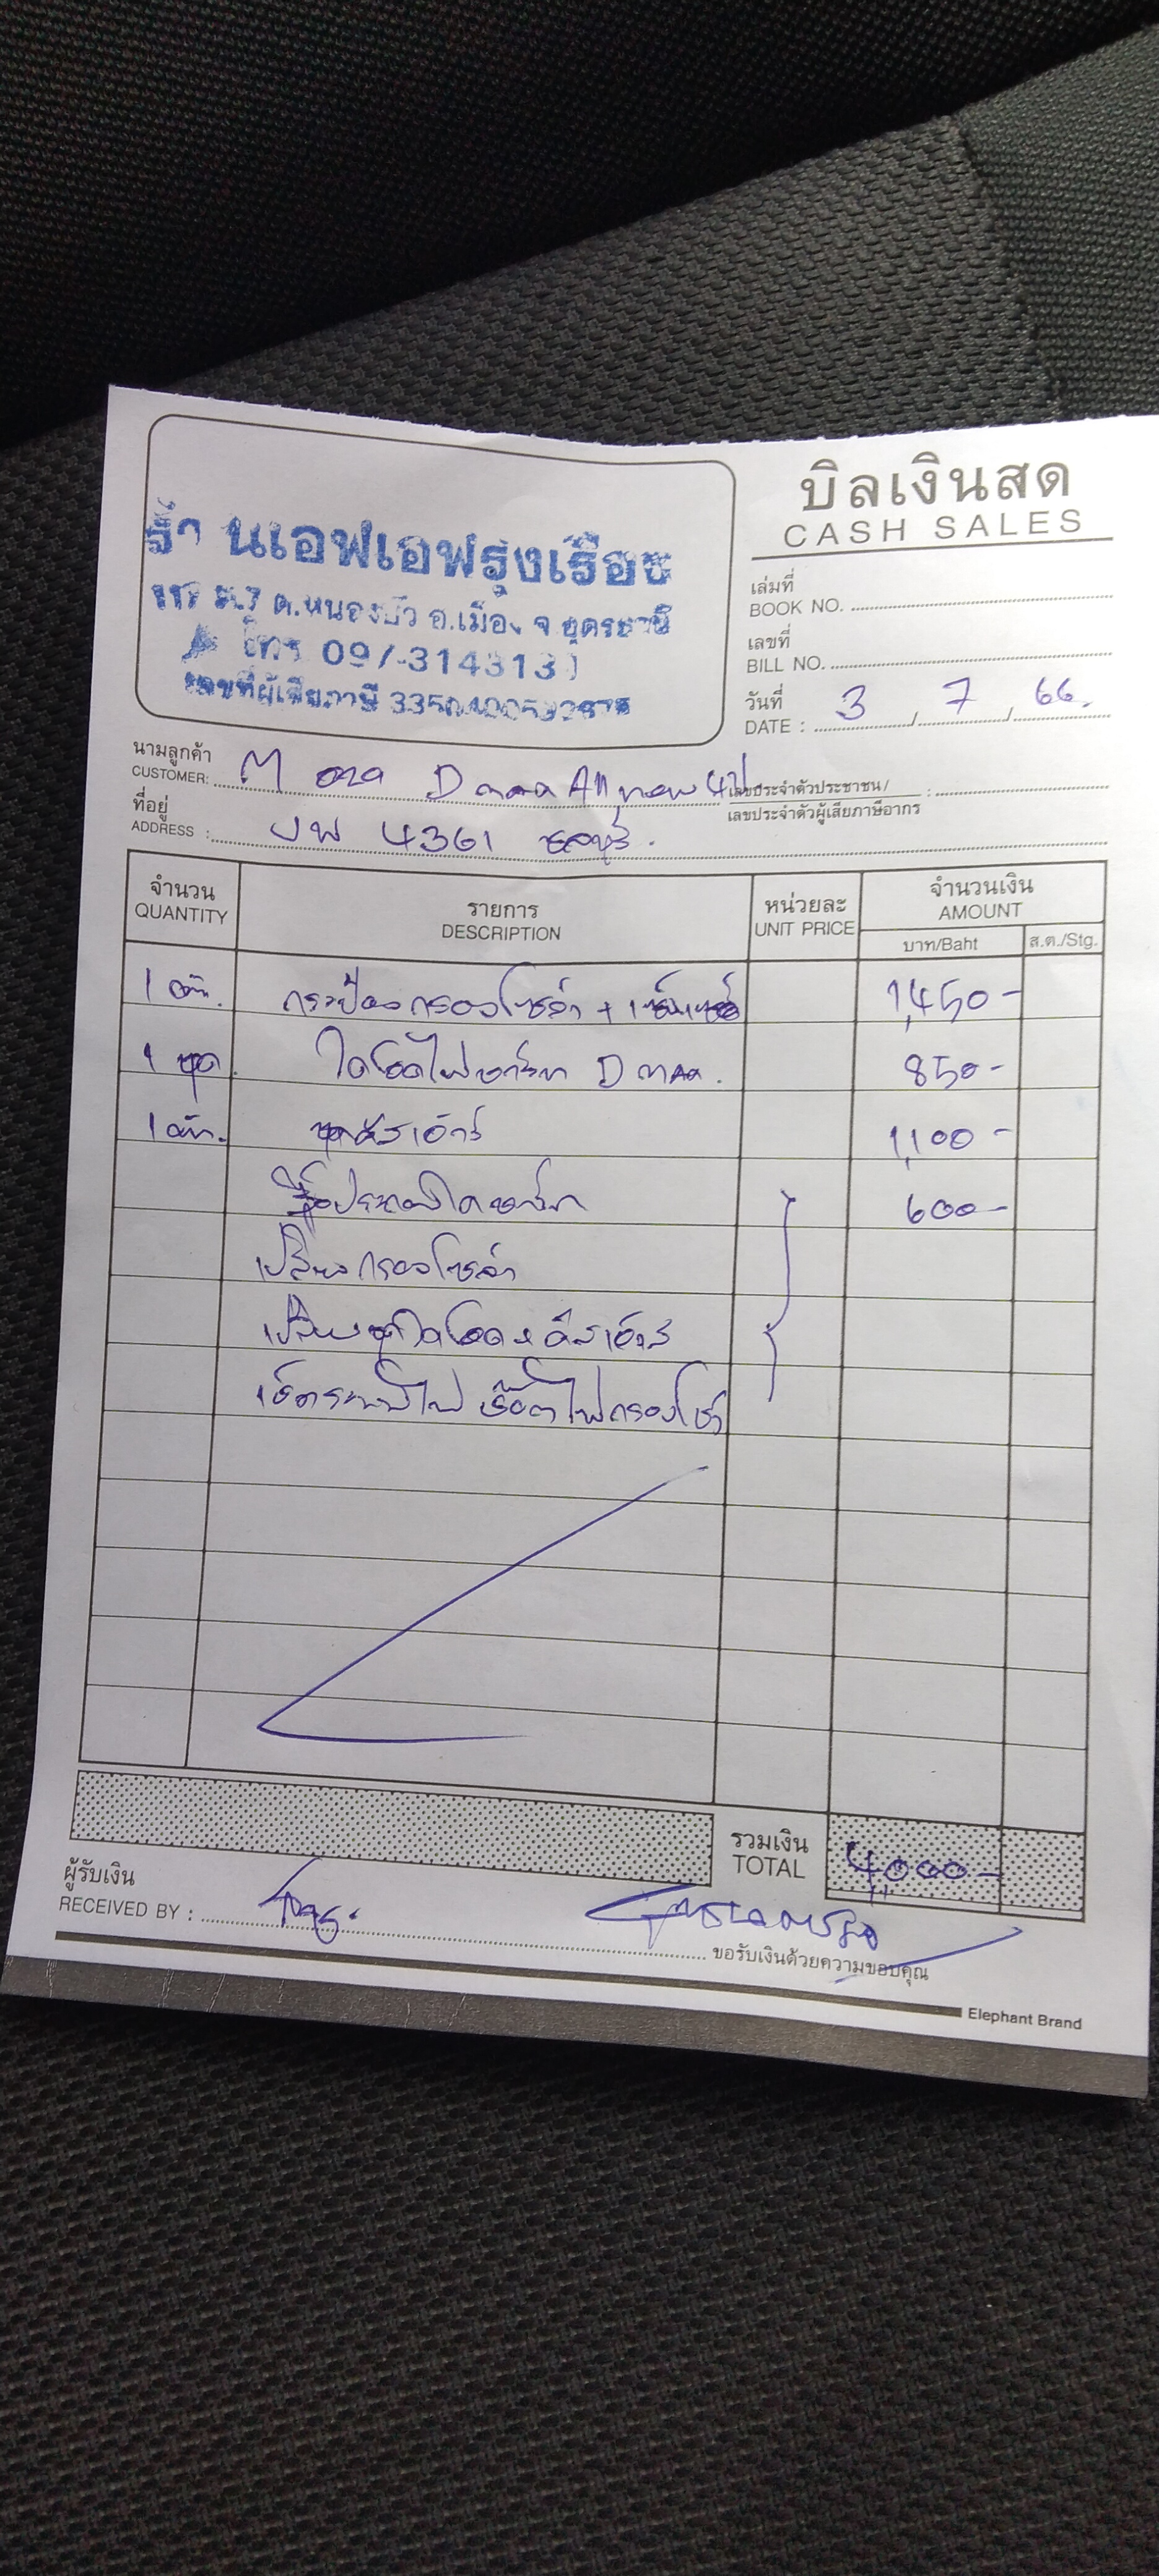 บิลเงินสด
CASH SALES
ร้านเอฟเอฟรุ่งเรือง
ต.หนองบัว อ.เมือง จ.อุดรธานี
โทร 09
เลขที่ผู้เสียภาษี
เล่มที่
BOOK NO.
เลขที่
BILL NO.
วันที่
DATE : 3 / 7 / 66.
นามลูกค้า
CUSTOMER: D max All new
เลขประจำตัวประชาชน/
เลขประจำตัวผู้เสียภาษีอากร :
ที่อยู่
ADDRESS : 4361 ชลบุรี.
จำนวน รายการ หน่วยละ จำนวนเงิน
QUANTITY DESCRIPTION UNIT PRICE AMOUNT
บาท/Baht ส.ต./Stg.
1 กระป๋องกรองโซล่า + 1,450-
1 ชุด ไดโอดไฟชาร์ท D max. 850-
1 1,100-
600-
เปลี่ยนกรองโซล่า
เปลี่ยนชุดไดโอด
เช็คระบบไฟ
รวมเงิน
TOTAL 4,000-
ผู้รับเงิน
RECEIVED BY :
ขอรับเงินด้วยความขอบคุณ
Elephant Brand